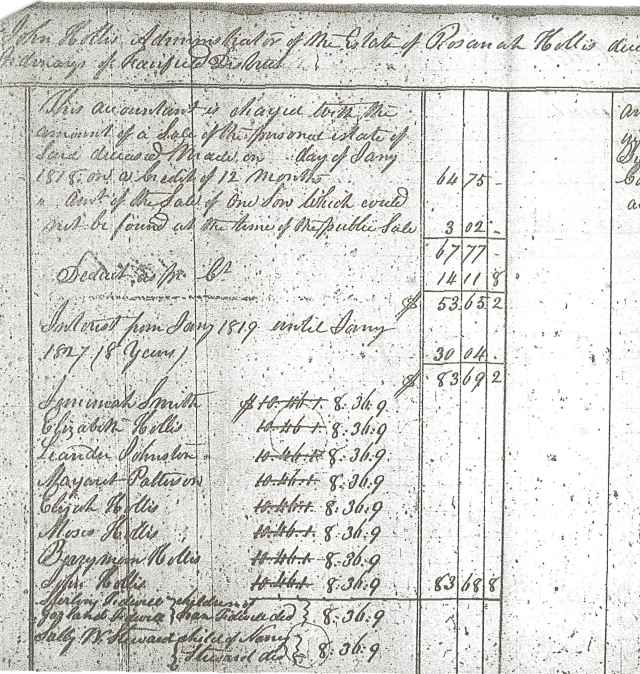 John Hollis Administrator of the Estate of Rosanah Hollis dece
Ordinary of Fairfield District
This accountant is charged with the
amount of a Sale of the personal estate of
said deceased, Made on day of Jany
1818 on a Credit of 12 Months 64 75 -
" Amt of the Sale of One Sow Which could
not be found at the time of the public Sale 3 02 -
67 77 -
Deduct as pr Ct 14 11 8
$ 53 65 2
Interest from Jany 1819 until Jany
1827 (8 Years) 30 04 .
$ 83 69 2
Jemimah Smith $ 10.46.1 8.36.9
Elizabeth Hollis 10.46.1 8.36.9
Leander Johnston 10.46.1 8.36.9
Margaret Patterson 10.46.1 8.36.9
Elijah Hollis 10.46.1 8.36.9
Moses Hollis 10.46.1 8.36.9
Berryman Hollis 10.46.1 8.36.9
John Hollis 10.46.1 8.36.9 83 68 8
children of
8.36.9
Sally W. Steward child of Nancy
Steward decd 8.36.9